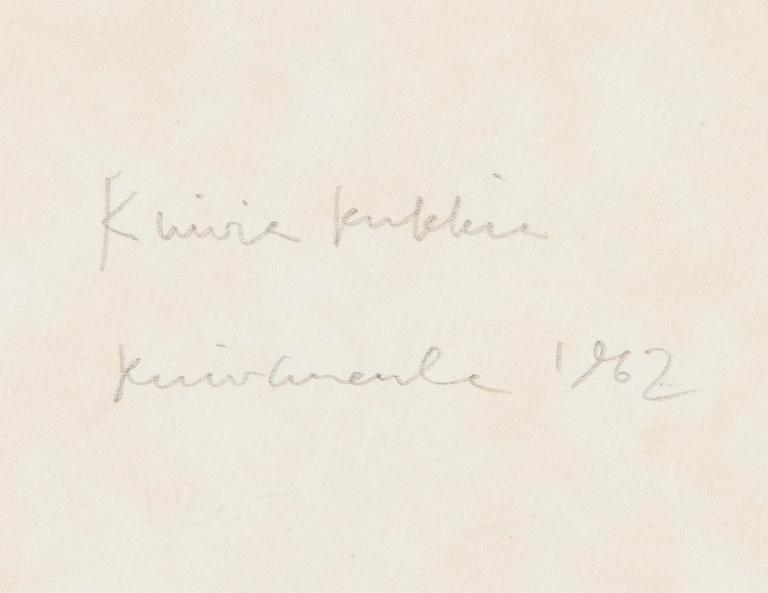 Kuivia kukkia
kuivaneula 1962